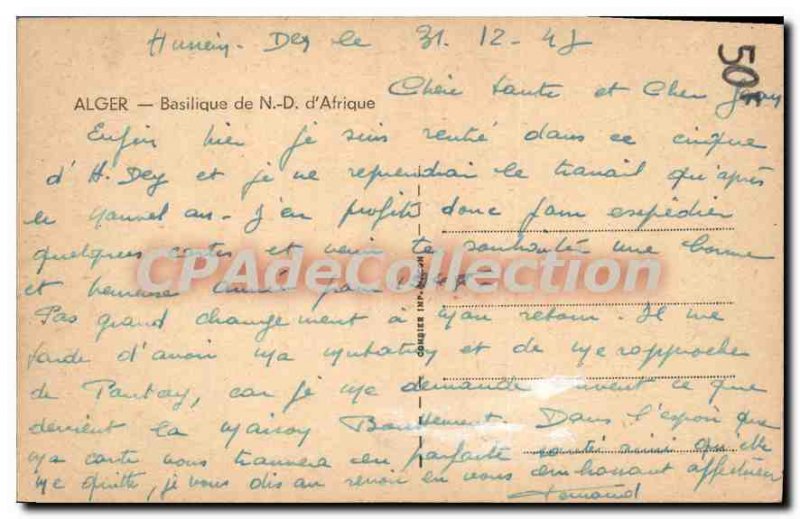 Hussein-Dey le 31.12-47
50F
Chère tante et Cher
ALGER — Basilique de N.-D. d'Afrique
Enfin hier je suis rentré dans ce cirque
d'H. Dey et je ne reprendrai le travail qu'après
le nouvel an - J'en profite donc pour expédier
quelques cartes et venir te souhaiter une bonne
et heureuse année pour
CPAdeCollection
COMBIER IMP. MACON
Pas grand changement à mon retour. Il me
tarde d'avoir ma mutation et de me rapprocher
de car je me demande souvent ce que
devient la maison Dans l'espoir que
ma carte vous trouvera en parfaite santé ainsi qu'elle
me quitte, je vous dis au revoir en vous embrassant affectueu
Fernand